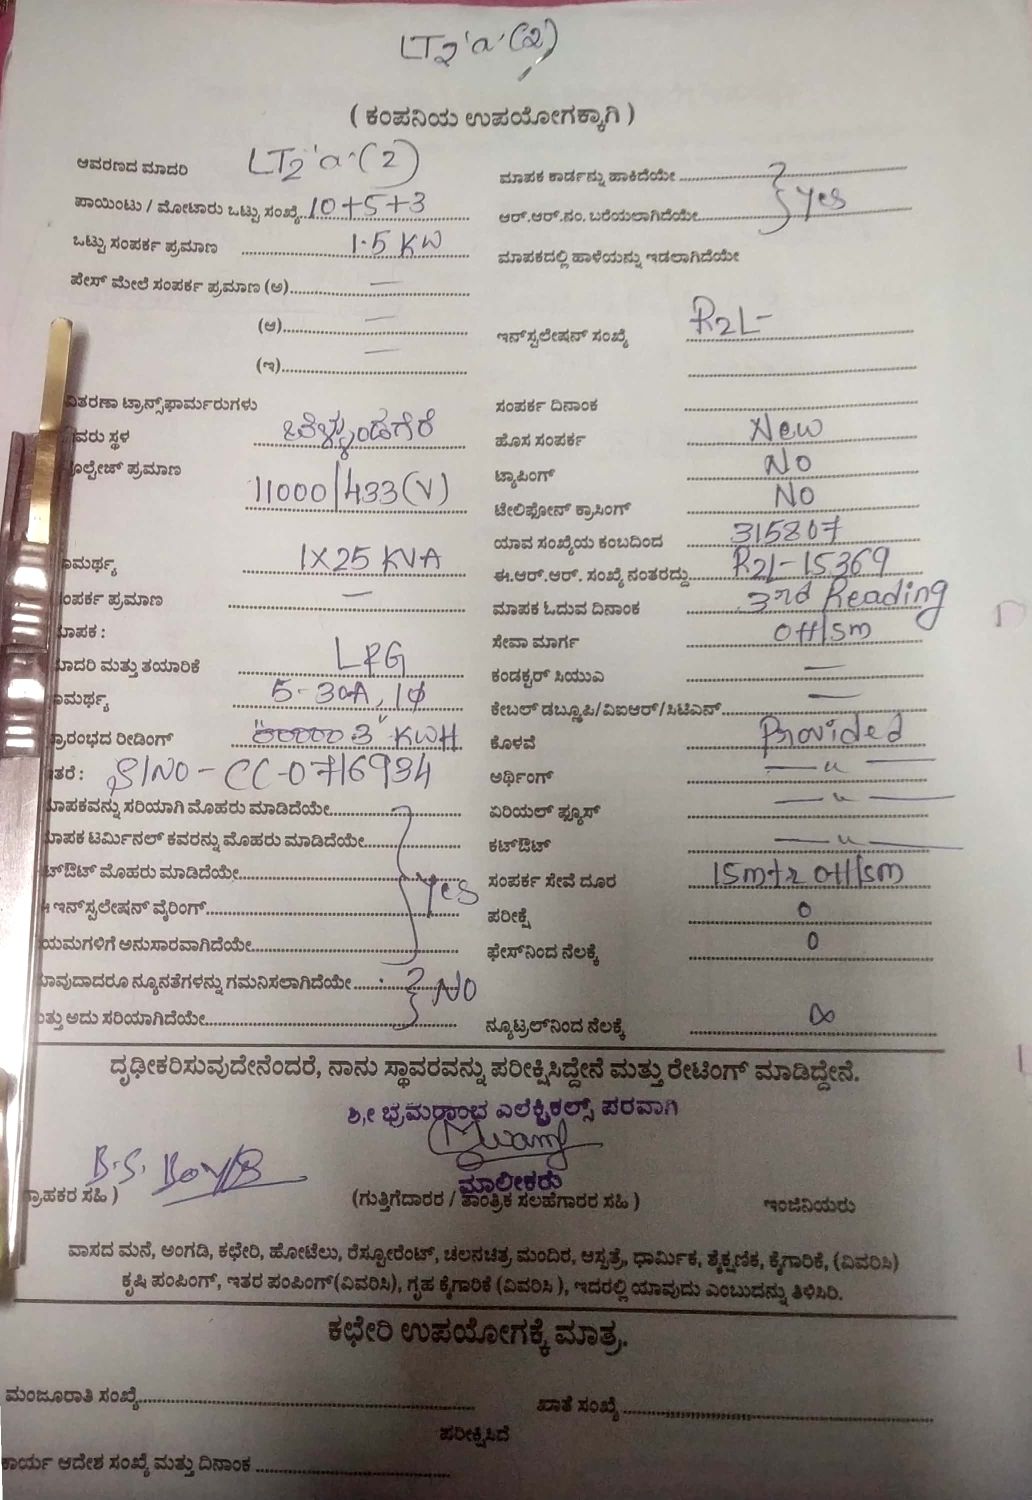 LT2 'a' (2)
( ಕಂಪನಿಯ ಉಪಯೋಗಕ್ಕಾಗಿ )
ಆವರಣದ ಮಾದರಿ LT2 'a' (2)
ಪಾಯಿಂಟು / ಮೋಟಾರು ಒಟ್ಟು ಸಂಖ್ಯೆ 10+5+3
ಒಟ್ಟು ಸಂಪರ್ಕ ಪ್ರಮಾಣ 1.5 KW
ಪೇಸ್ ಮೇಲೆ ಸಂಪರ್ಕ ಪ್ರಮಾಣ (ಅ) —
(ಆ) —
(ಇ) —
ವಿತರಣಾ ಟ್ರಾನ್ಸ್‌ಫಾರ್ಮರುಗಳು
ವರು ಸ್ಥಳ
ೋಲ್ಟೇಜ್ ಪ್ರಮಾಣ 11000/433(V)
ಾಮರ್ಥ್ಯ 1X25 KVA
ಂಪರ್ಕ ಪ್ರಮಾಣ —
ಮಾಪಕ :
ಮಾದರಿ ಮತ್ತು ತಯಾರಿಕೆ
ಾಮರ್ಥ್ಯ 5-30A, 1Φ
ಪ್ರಾರಂಭದ ರೀಡಿಂಗ್ "00000 3" KWH
ಇತರೆ : S/NO - CC-0716934
ಮಾಪಕವನ್ನು ಸರಿಯಾಗಿ ಮೊಹರು ಮಾಡಿದೆಯೇ
ಮಾಪಕ ಟರ್ಮಿನಲ್ ಕವರನ್ನು ಮೊಹರು ಮಾಡಿದೆಯೇ
ಟ್‌ಔಟ್ ಮೊಹರು ಮಾಡಿದೆಯೇ Yes
ಇನ್‌ಸ್ಟಲೇಷನ್ ವೈರಿಂಗ್
ಯಮಗಳಿಗೆ ಅನುಸಾರವಾಗಿದೆಯೇ
ಯಾವುದಾದರೂ ನ್ಯೂನತೆಗಳನ್ನು ಗಮನಿಸಲಾಗಿದೆಯೇ No
ಮತ್ತು ಅದು ಸರಿಯಾಗಿದೆಯೇ
ಮಾಪಕ ಕಾರ್ಡನ್ನು ಹಾಕಿದೆಯೇ Yes
ಆರ್.ಆರ್.ನಂ. ಬರೆಯಲಾಗಿದೆಯೇ
ಮಾಪಕದಲ್ಲಿ ಹಾಳೆಯನ್ನು ಇಡಲಾಗಿದೆಯೇ
ಇನ್‌ಸ್ಟಲೇಷನ್ ಸಂಖ್ಯೆ R2L-
ಸಂಪರ್ಕ ದಿನಾಂಕ
ಹೊಸ ಸಂಪರ್ಕ New
ಟ್ಯಾಪಿಂಗ್ NO
ಟೇಲಿಫೋನ್ ಕ್ರಾಸಿಂಗ್ NO
ಯಾವ ಸಂಖ್ಯೆಯ ಕಂಬದಿಂದ 315807
ಈ.ಆರ್.ಆರ್. ಸಂಖ್ಯೆ ನಂತರದ್ದು R2L-15369
ಮಾಪಕ ಓದುವ ದಿನಾಂಕ 3rd Reading
ಸೇವಾ ಮಾರ್ಗ OH/Sm
ಕಂಡಕ್ಟರ್ ಸಿಯುಎ —
ಕೇಬಲ್ ಡಬ್ಲ್ಯೂಪಿ/ವಿಐಆರ್/ಸಿಟಿಎನ್ —
ಕೊಳವೆ Provided
ಅರ್ಥಿಂಗ್ — " —
ಏರಿಯಲ್ ಫ್ಯೂಸ್ — " —
ಕಟ್‌ಔಟ್ — " —
ಸಂಪರ್ಕ ಸೇವೆ ದೂರ 15mtr OH/Sm
ಪರೀಕ್ಷೆ 0
ಫೇಸ್‌ನಿಂದ ನೆಲಕ್ಕೆ 0
ನ್ಯೂಟ್ರಲ್‌ನಿಂದ ನೆಲಕ್ಕೆ ∞
ದೃಢೀಕರಿಸುವುದೇನೆಂದರೆ, ನಾನು ಸ್ಥಾವರವನ್ನು ಪರೀಕ್ಷಿಸಿದ್ದೇನೆ ಮತ್ತು ರೇಟಿಂಗ್ ಮಾಡಿದ್ದೇನೆ.
ಶ್ರೀ ಭ್ರಮರಾಂಭ ಎಲೆಕ್ಟ್ರಿಕಲ್ಸ್ ಪರವಾಗಿ
ಮಾಲೀಕರು
ಗ್ರಾಹಕರ ಸಹಿ )
(ಗುತ್ತಿಗೆದಾರರ / ತಾಂತ್ರಿಕ ಸಲಹೆಗಾರರ ಸಹಿ )
ಇಂಜಿನಿಯರು
ವಾಸದ ಮನೆ, ಅಂಗಡಿ, ಕಛೇರಿ, ಹೋಟೆಲು, ರೆಸ್ಟೋರೆಂಟ್, ಚಲನಚಿತ್ರ ಮಂದಿರ, ಆಸ್ಪತ್ರೆ, ಧಾರ್ಮಿಕ, ಶೈಕ್ಷಣಿಕ, ಕೈಗಾರಿಕೆ, (ವಿವರಿಸಿ)
ಕೃಷಿ ಪಂಪಿಂಗ್, ಇತರ ಪಂಪಿಂಗ್(ವಿವರಿಸಿ), ಗೃಹ ಕೈಗಾರಿಕೆ (ವಿವರಿಸಿ ), ಇದರಲ್ಲಿ ಯಾವುದು ಎಂಬುದನ್ನು ತಿಳಿಸಿರಿ.
ಕಛೇರಿ ಉಪಯೋಗಕ್ಕೆ ಮಾತ್ರ.
ಮಂಜೂರಾತಿ ಸಂಖ್ಯೆ
ಖಾತೆ ಸಂಖ್ಯೆ
ಪರೀಕ್ಷಿಸಿದೆ
ಕಾರ್ಯ ಆದೇಶ ಸಂಖ್ಯೆ ಮತ್ತು ದಿನಾಂಕ